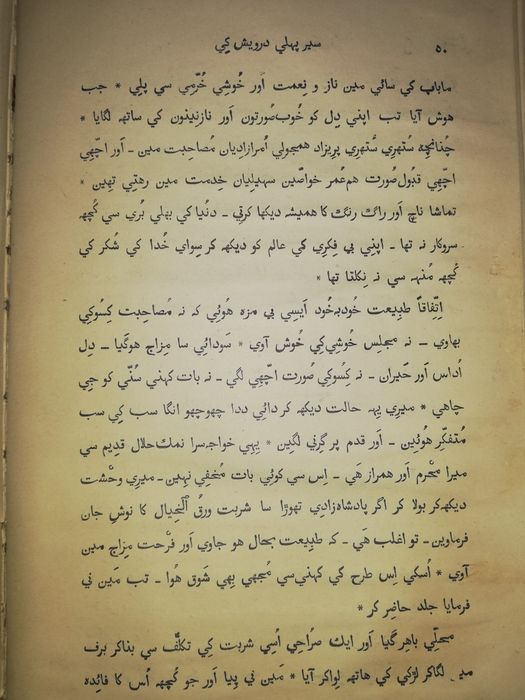 ۵۰ سیر پہلي درویش کي
ماباپ کي سائي مین ناز و نِعمت اَور خُوشِي خُرّمِي سي پلي * جب
ہوش آیا تب اپني دِل کو خُوب‌صُورتون اَور نازنینون کي ساتھ لگایا *
چُنانچِہ سُتھرِي سُتھرِي پرِیزاد ہمجولي اُمرازادِیان مُصاحِبت مین - اَور اچّھِي
اچّھِي قبُول‌صُورت ہم‌عُمر خواصّین سہیلِیان خِدمت مین رہتِي تھِین *
تماشا ناچ اَور راگ رنگ کا ہمیشہ دیکھا کرتِي - دُنیا کي بھلي بُري سي کُچھ
سروکار نہ تھا - اپنِي بي فِکرِي کي عالم کو دیکھ کر سِواي خُدا کي شُکر کي
کُچھ مُنہہ سي نہ نِکلتا تھا *
اِتّفاقاً طبِیعت خُودبہ‌خُود اَیسِي بي مزہ ہُوئِي کہ نہ مُصاحِبت کِسُوکِي
بھاوي - نہ مجلِس خُوشِي‌کِي خُوش آوي * سَودائِي سا مِزاج ہوگیا - دِل
اُداس اَور حَیران - نہ کِسُوکِي صُورت اچّھِي لگي - نہ بات کہني سُنّي کو جِي
چاہي * میرِي یِہ حالت دیکھ کر دائِي ددا چھوچھو انگا سب کِي سب
مُتفکِّر ہوئِین - اَور قدم پر گِرني لگِین * یِہِي خواجہ‌سرا نمک‌حلال قدِیم سي
میرا محْرم اَور ہمراز ہَي - اِس سي کوئِي بات مُخفِي نہِین - میرِي وحْشت
دیکھ‌کر بولا کر اگر پادشاہ‌زادِي تھوڑا سا شربت ورقُ الْخیال کا نوشِ جان
فرماوین - تو اغلب ہَي - کہ طبِیعت بحال ہو جاوي اَور فرْحت مِزاج مین
آوي * اُسکي اِس طرح کي کہني‌سي مُجھي بھِي شَوق ہُوا - تب مَین ني
فرمایا جلد حاضِر کر *
محلِّي باہر گیا اَور ایک صُراحِي اُسِي شربت کِي تکلُّف سي بناکر برف
مین لگاکر لڑکي کي ہاتھ لِواکر آیا * مَین ني پِیا اَور جو کُچھ اُس کا فائِدہ